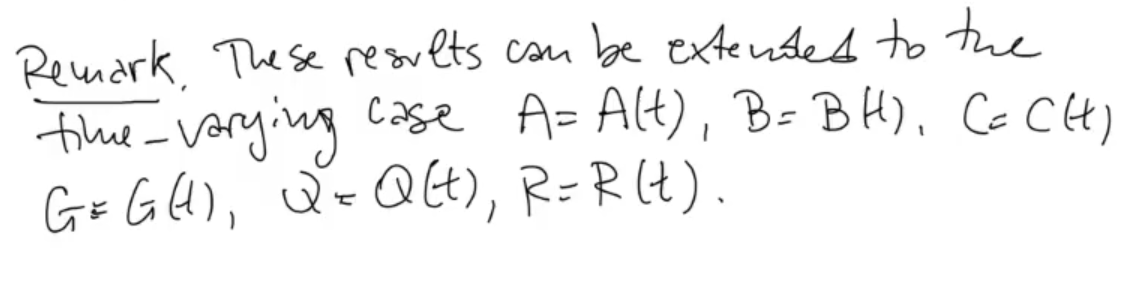 Remark. These results can be extended to the
time-varying case A = A(t), B = B(t), C = C(t)
G = G(t), Q = Q(t), R = R(t).